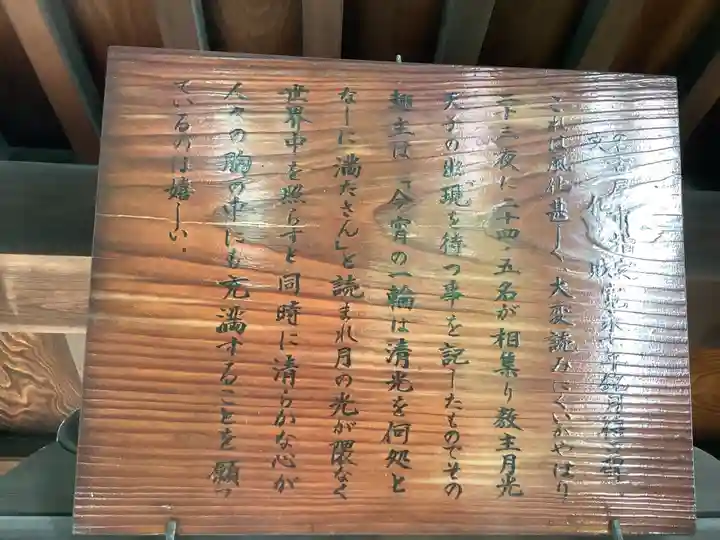 名古屋市指定
文化財 寛永十年銘月待碑
これは風化甚しく、大変読みにくいがやはり
二十三夜に二十四・五名が相集り教主月光
天子の出現を待つ事を記したものでその
趣主は「今宵の一輪は清光を何処と
なーに満たさん」と読まれ月の光が隈なく
世界中を照らすと同時に清らかな心が
人々の胸の中にも充満することを願っ
ているのは嬉しい。